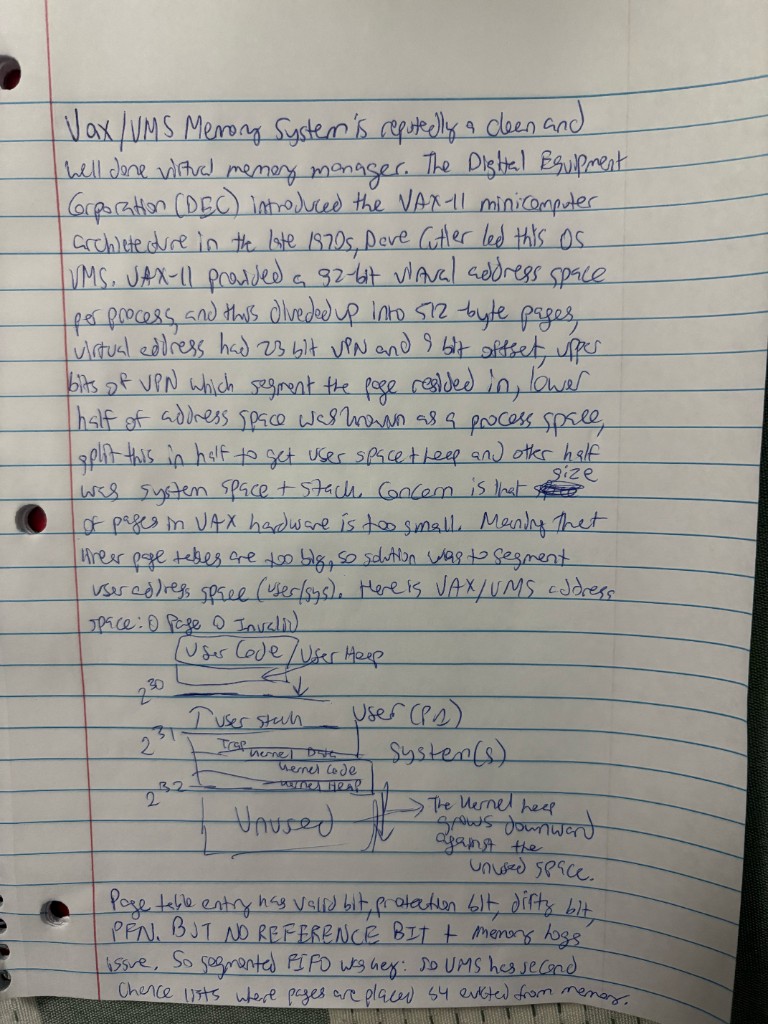 Vax/VMS Memory System is reputedly a clean and
well done virtual memory manager. The Digital Equipment
Corporation (DEC) introduced the VAX-11 minicomputer
architecture in the late 1970s, Dave Cutler led this OS
VMS. VAX-11 provided a 32-bit virtual address space
per process, and thus divided up into 512-byte pages,
virtual address had 23 bit VPN and 9 bit offset, upper
bits of VPN which segment the page resided in, lower
half of address space was known as a process space,
split this in half to get user space + heep and other half
was system space + stack. Concern is that size
of pages in VAX hardware is too small. Meaning that
linear page tables are too big, so solution was to segment
user address space (user/sys). Here is VAX/VMS address
space: 0 Page 0 Invalid
User Code / User Heap
2^30
↑ User stack User (P1)
2^31
Trap
Kernel Data System (S)
Kernel Code
2^32 Kernel Heap
Unused → The Kernel heep
grows downward
against the
unused space.
Page table entry has valid bit, protection bit, dirty bit,
PFN. BUT NO REFERENCE BIT + memory hogs
issue. So segmented FIFO was key: so VMS has second
Chance lists where pages are placed b4 evicted from memory.